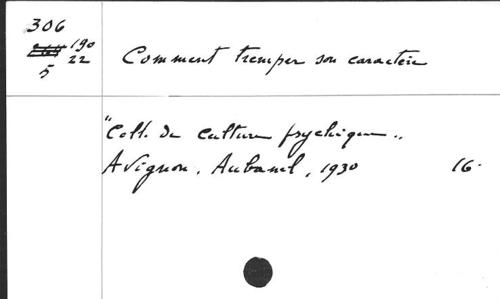 306
190
22
5
Comment tremper son caractère
"Coll. de culture psychique"
Avignon, Aubanel, 1930 16·